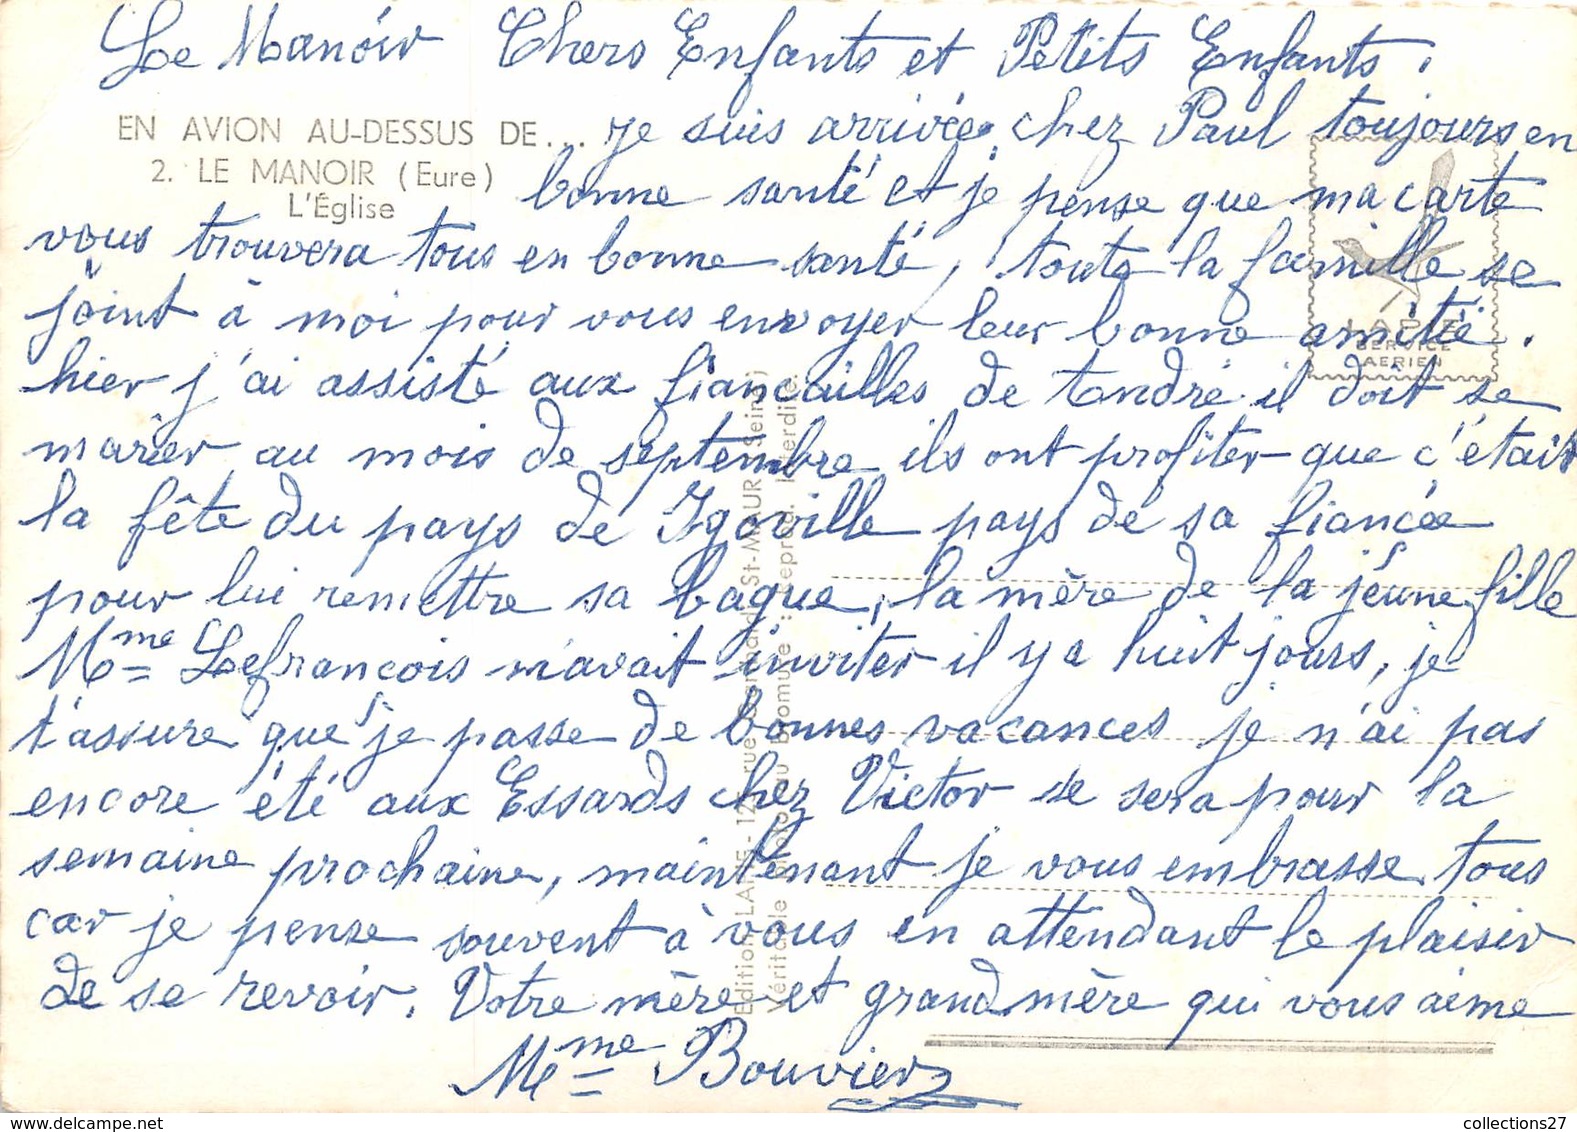 Le Manoir Chers Enfants et Petits Enfants.
EN AVION AU-DESSUS DE...
2. LE MANOIR (Eure)
L'Église
je suis arrivée chez Paul toujours en
bonne santé et je pense que ma carte
vous trouvera tous en bonne santé, toute la famille se
joint à moi pour vous envoyer leur bonne amitié.
hier j'ai assisté aux fiançailles de tendré il doit se
marier au mois de septembre ils ont profiter que c'était
la fête du pays de Igoville pays de sa fiancée
pour lui remettre sa bague, la mère de la jeune fille
Mme Lefrancois m'avait inviter il y a huit jours, je
t'assure que je passe de bonnes vacances je n'ai pas
encore été aux Essards chez Victor se sera pour la
semaine prochaine, maintenant je vous embrasse tous
car je pense souvent à vous en attendant le plaisir
de se revoir. Votre mère et grand mère qui vous aime
Mme Bouvier
LAPIE
SERVICE
AERIEN
Editions LAPIE - 125, rue St-MAUR (Seine)
Véritable photo au Bromure : Reprod. Interdite.
collections27